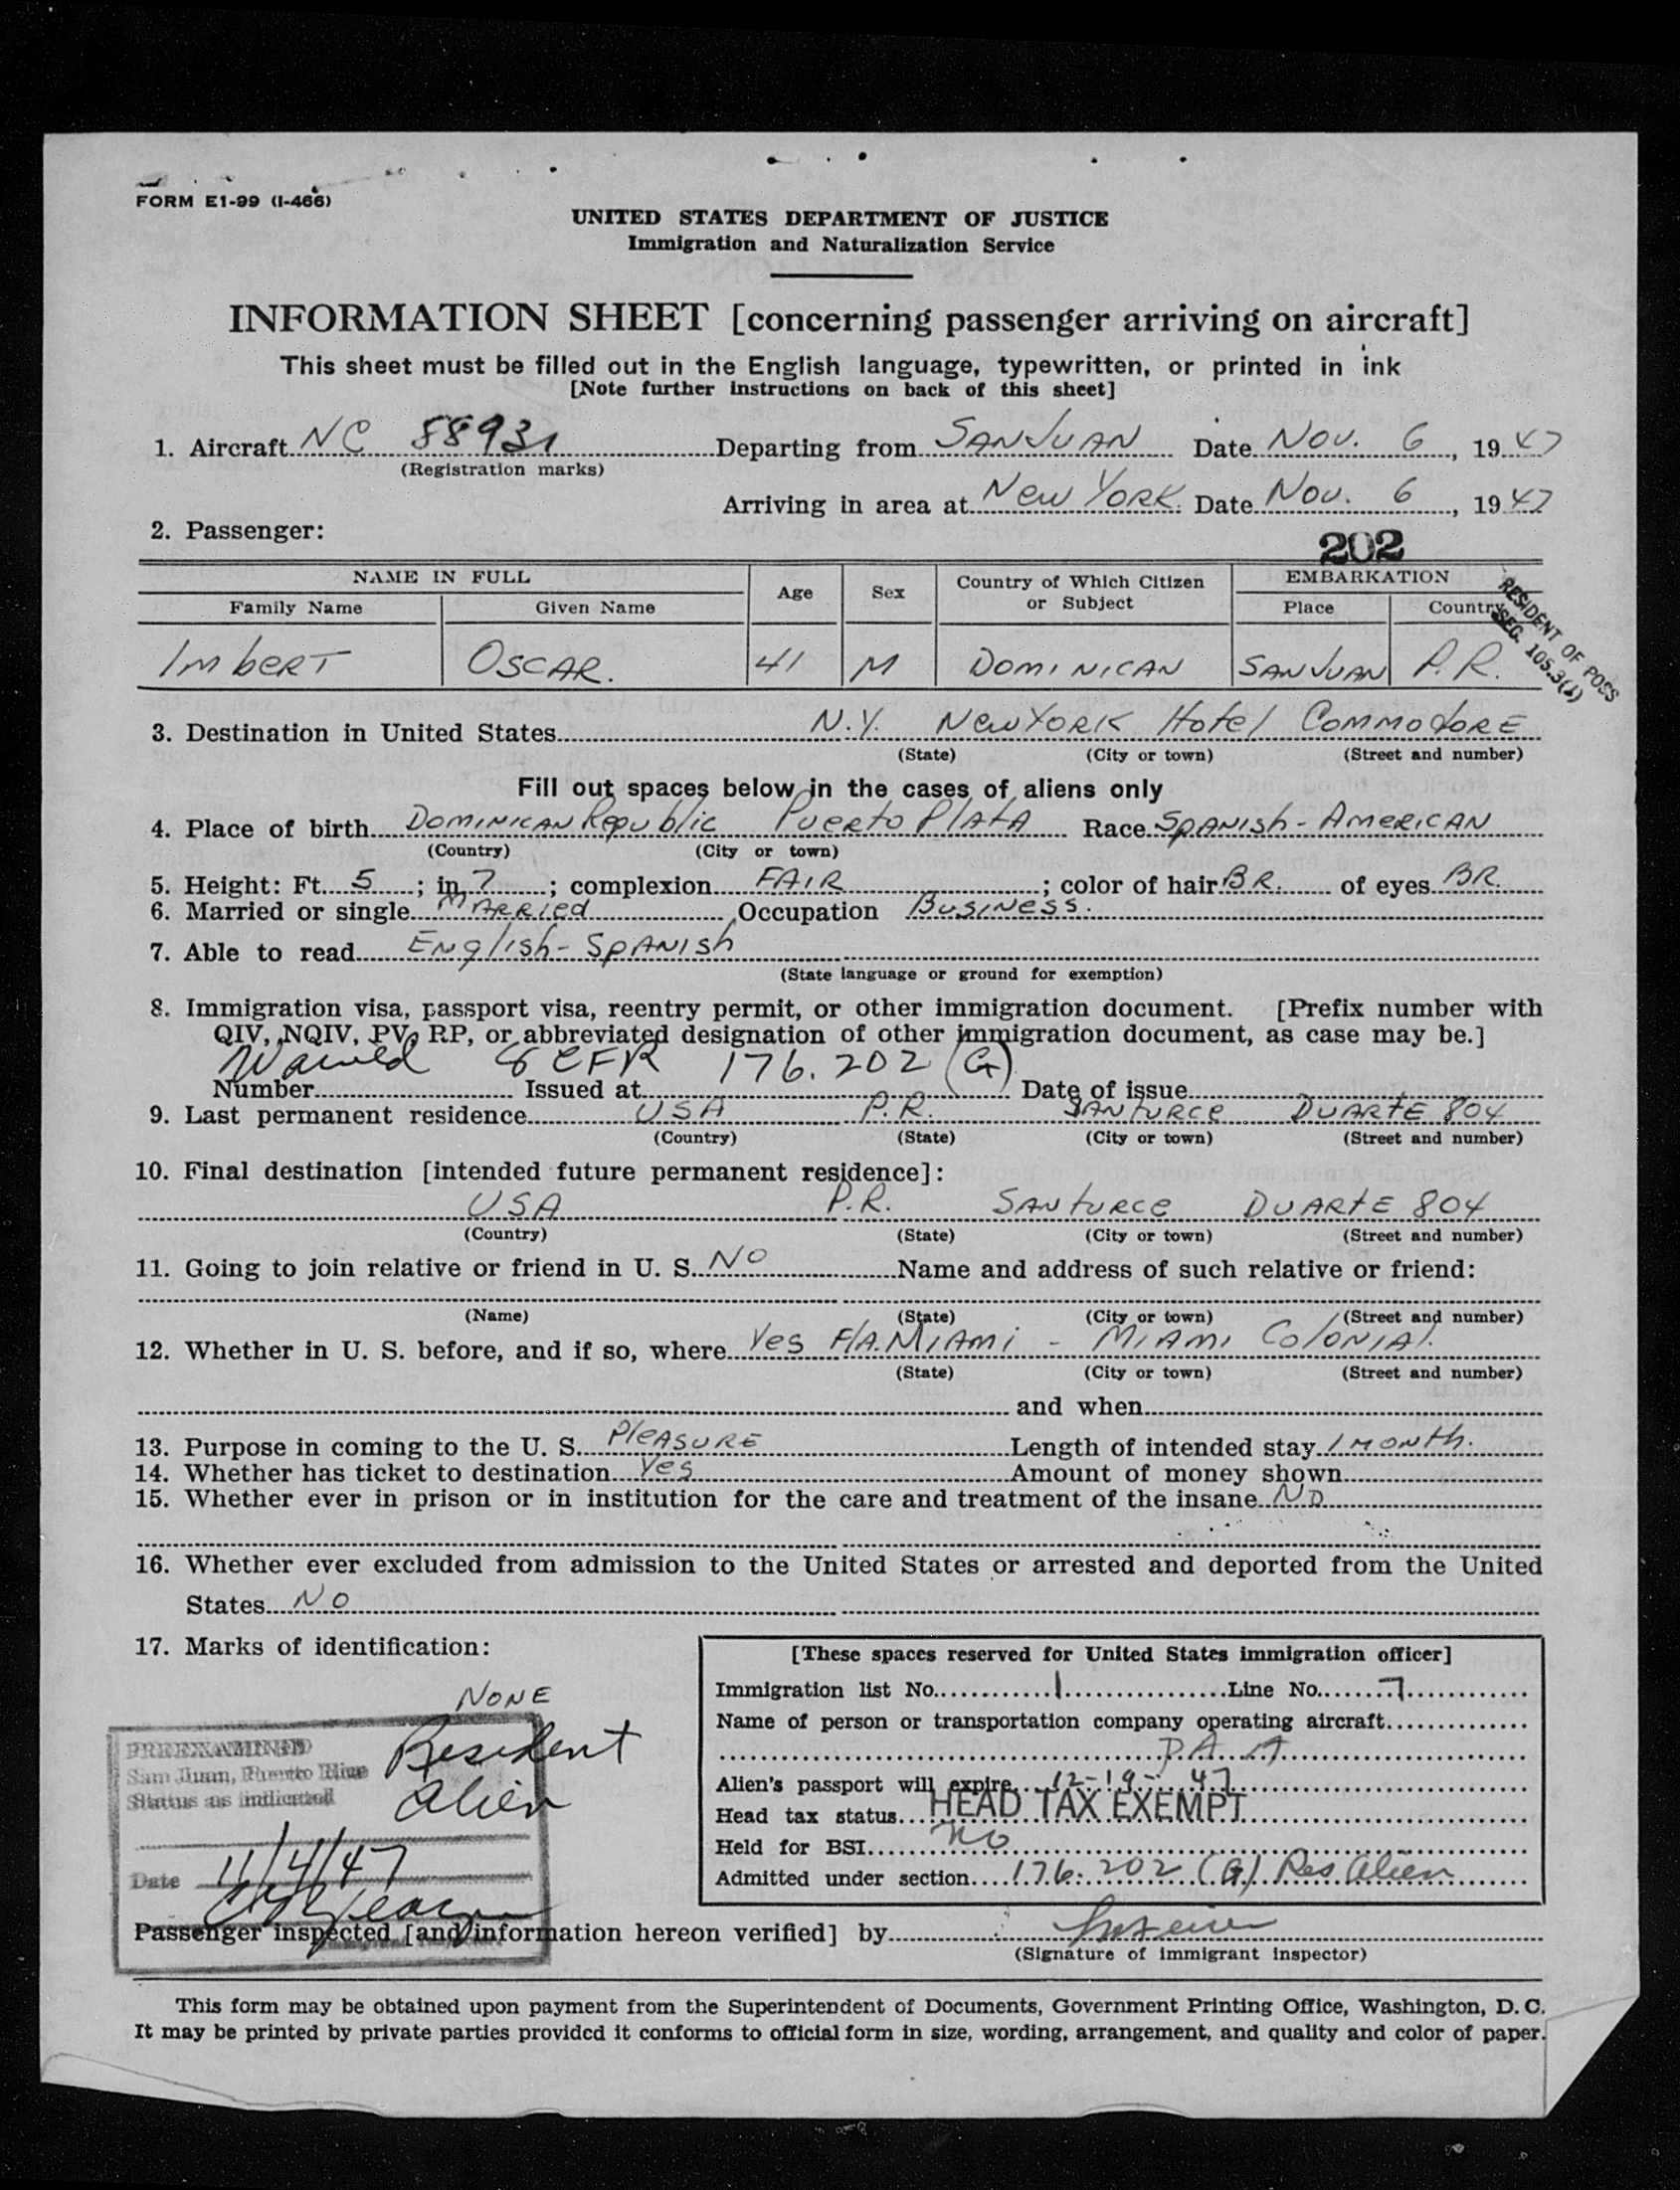 FORM E1-99 (I-466)
UNITED STATES DEPARTMENT OF JUSTICE
Immigration and Naturalization Service
INFORMATION SHEET [concerning passenger arriving on aircraft]
This sheet must be filled out in the English language, typewritten, or printed in ink
[Note further instructions on back of this sheet]
1. Aircraft NC 88931 Departing from SAN JUAN Date Nov. 6, 1947
(Registration marks)
Arriving in area at New YORK Date Nov. 6, 1947
2. Passenger:
202
NAME IN FULL Age Sex Country of Which Citizen or Subject EMBARKATION
Family Name Given Name Place Country
RESIDENT OF POSS
SEC. 105.3(1)
ImbERT OSCAR. 41 M DOMINICAN SAN JUAN P.R.
3. Destination in United States N.Y. New YORK Hotel COMMOdORE
(State) (City or town) (Street and number)
Fill out spaces below in the cases of aliens only
4. Place of birth DOMINICAN Republic Puerto PlAtA Race SPANISh - AMERICAN
(Country) (City or town)
5. Height: Ft. 5; in. 7; complexion FAIR; color of hair BR. of eyes BR.
6. Married or single MARRied Occupation Business.
7. Able to read English - SpANISh
(State language or ground for exemption)
8. Immigration visa, passport visa, reentry permit, or other immigration document. [Prefix number with
QIV, NQIV, PV, RP, or abbreviated designation of other immigration document, as case may be.]
Waived 8 CFR 176.202 (G)
Number Issued at Date of issue
9. Last permanent residence USA P.R. SANTURCE DUARTE 804
(Country) (State) (City or town) (Street and number)
10. Final destination [intended future permanent residence]:
USA P.R. SANTURCE DUARTE 804
(Country) (State) (City or town) (Street and number)
11. Going to join relative or friend in U. S. NO Name and address of such relative or friend:
(Name) (State) (City or town) (Street and number)
12. Whether in U. S. before, and if so, where Yes FlA. MIAMi - MIAMI COlONIAl.
(State) (City or town) (Street and number)
and when
13. Purpose in coming to the U. S. PleASURE Length of intended stay 1 MONTh.
14. Whether has ticket to destination Yes Amount of money shown
15. Whether ever in prison or in institution for the care and treatment of the insane NO
16. Whether ever excluded from admission to the United States or arrested and deported from the United
States NO
17. Marks of identification:
NONE
PREEXAMINED
San Juan, Puerto Rico
Status as indicated
Resident
alien
Date 11/4/47
[These spaces reserved for United States immigration officer]
Immigration list No. 1 Line No. 7
Name of person or transportation company operating aircraft
P.A.A
Alien's passport will expire 12-19-47
Head tax status HEAD TAX EXEMPT
Held for BSI no
Admitted under section 176.202 (G) Res alien
Passenger inspected [and information hereon verified] by
(Signature of immigrant inspector)
This form may be obtained upon payment from the Superintendent of Documents, Government Printing Office, Washington, D. C.
It may be printed by private parties provided it conforms to official form in size, wording, arrangement, and quality and color of paper.